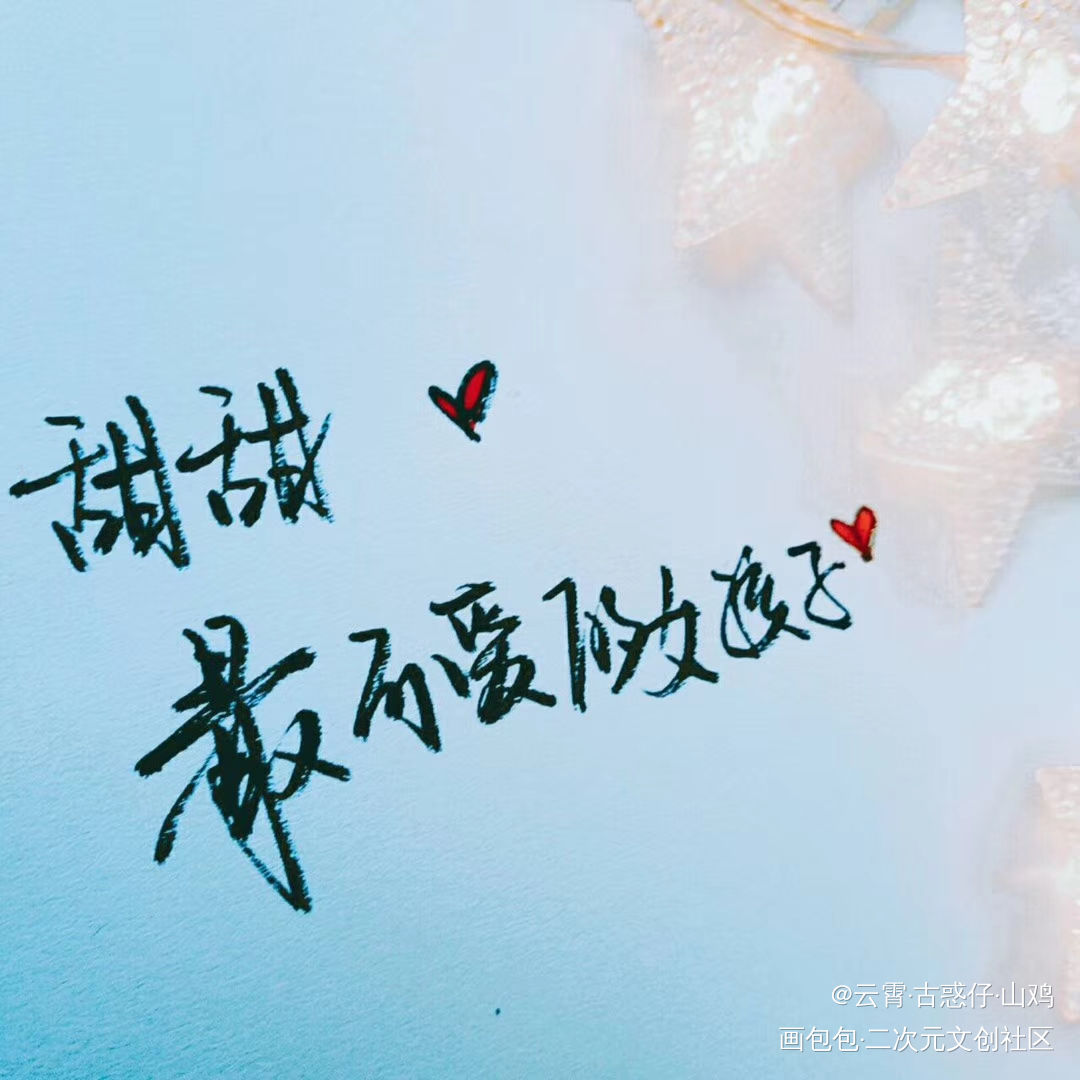 甜甜
最可爱的女孩子
@云霄·古惑仔·山鸡
画包包·二次元文创社区